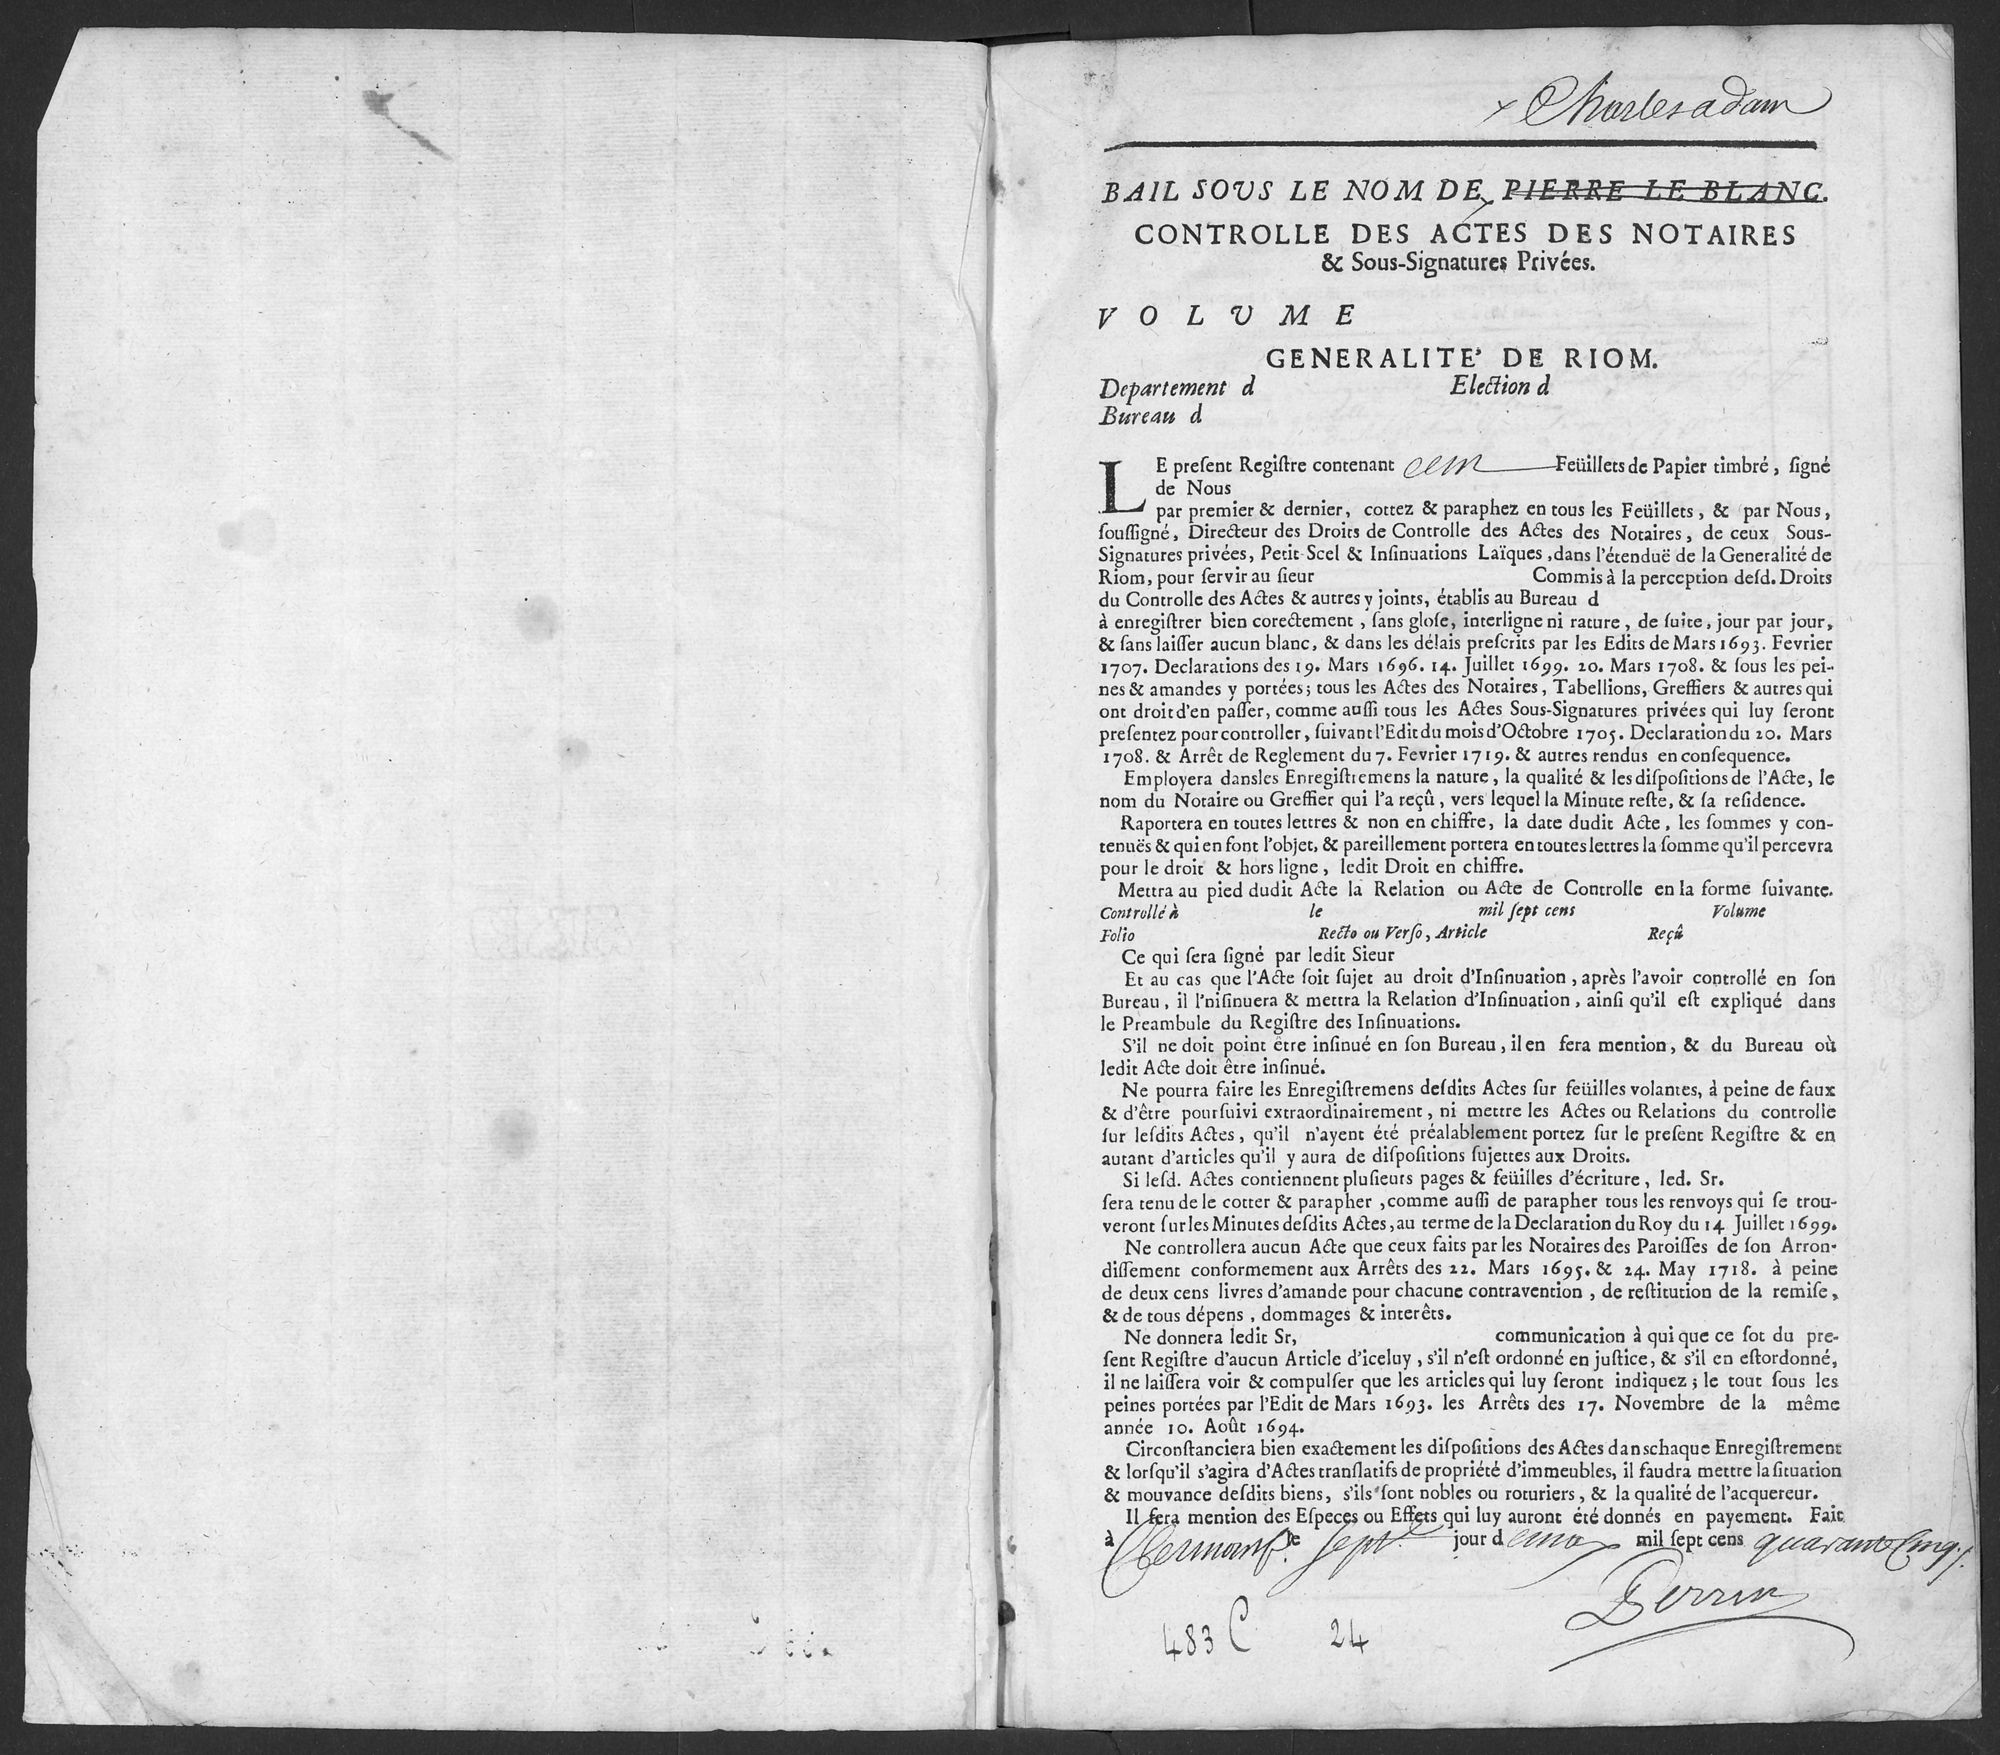 x Charles adam
BAIL SOUS LE NOM DE x PIERRE LE BLANC.
CONTROLLE DES ACTES DES NOTAIRES
& Sous-Signatures Privées.
VOLUME
GENERALITE' DE RIOM.
Departement d Election d
Bureau d
LE preſent Regiſtre contenant cent Feüillets de Papier timbré, ſigné
de Nous
par premier & dernier, cottez & paraphez en tous les Feüillets, & par Nous,
ſouſſigné, Directeur des Droits de Controlle des Actes des Notaires, de ceux Sous-
Signatures privées, Petit Scel & Inſinuations Laïques, dans l'étenduë de la Generalité de
Riom, pour ſervir au ſieur Commis à la perception deſd. Droits
du Controlle des Actes & autres y joints, établis au Bureau d
à enregiſtrer bien corectement, ſans gloſe, interligne ni rature, de ſuite, jour par jour,
& ſans laiſſer aucun blanc, & dans les délais preſcrits par les Edits de Mars 1693. Fevrier
1707. Declarations des 19. Mars 1696. 14. Juillet 1699. 20. Mars 1708. & ſous les pei-
nes & amandes y portées; tous les Actes des Notaires, Tabellions, Greffiers & autres qui
ont droit d'en paſſer, comme auſſi tous les Actes Sous-Signatures privées qui luy ſeront
preſentez pour controller, ſuivant l'Edit du mois d'Octobre 1705. Declaration du 20. Mars
1708. & Arrêt de Reglement du 7. Fevrier 1719. & autres rendus en conſequence.
Employera dans les Enregiſtremens la nature, la qualité & les diſpoſitions de l'Acte, le
nom du Notaire ou Greffier qui l'a reçû, vers lequel la Minute reſte, & ſa reſidence.
Raportera en toutes lettres & non en chiffre, la date dudit Acte, les ſommes y con-
tenuës & qui en font l'objet, & pareillement portera en toutes lettres la ſomme qu'il percevra
pour le droit & hors ligne, ledit Droit en chiffre.
Mettra au pied dudit Acte la Relation ou Acte de Controlle en la forme ſuivante.
Controllé à le mil ſept cens Volume
Folio Recto ou Verſo, Article Reçû
Ce qui ſera ſigné par ledit Sieur
Et au cas que l'Acte ſoit ſujet au droit d'Inſinuation, après l'avoir controllé en ſon
Bureau, il l'niſinuera & mettra la Relation d'Inſinuation, ainſi qu'il eſt expliqué dans
le Preambule du Regiſtre des Inſinuations.
S'il ne doit point être inſinué en ſon Bureau, il en fera mention, & du Bureau où
ledit Acte doit être inſinué.
Ne pourra faire les Enregiſtremens deſdits Actes ſur feüilles volantes, à peine de faux
& d'être pourſuivi extraordinairement, ni mettre les Actes ou Relations du controlle
ſur leſdits Actes, qu'il n'ayent été préalablement portez ſur le preſent Regiſtre & en
autant d'articles qu'il y aura de diſpoſitions ſujettes aux Droits.
Si leſd. Actes contiennent pluſieurs pages & feüilles d'écriture, led. Sr.
ſera tenu de le cotter & parapher, comme auſſi de parapher tous les renvoys qui ſe trou-
veront ſur les Minutes deſdits Actes, au terme de la Declaration du Roy du 14 Juillet 1699.
Ne controllera aucun Acte que ceux faits par les Notaires des Paroiſſes de ſon Arron-
diſſement conformement aux Arrêts des 22. Mars 1695. & 24. May 1718. à peine
de deux cens livres d'amande pour chacune contravention, de reſtitution de la remiſe,
& de tous dépens, dommages & interêts.
Ne donnera ledit Sr, communication à qui que ce ſot du pre-
ſent Regiſtre d'aucun Article d'iceluy, s'il n'eſt ordonné en juſtice, & s'il en eſtordonné,
il ne laiſſera voir & compulſer que les articles qui luy ſeront indiquez; le tout ſous les
peines portées par l'Edit de Mars 1693. les Arrêts des 17. Novembre de la même
année 10. Août 1694.
Circonſtanciera bien exactement les diſpoſitions des Actes dans chaque Enregiſtrement
& lorſqu'il s'agira d'Actes tranſlatifs de propriété d'immeubles, il faudra mettre la ſituation
& mouvance deſdits biens, s'ils ſont nobles ou roturiers, & la qualité de l'acquereur.
Il fera mention des Eſpeces ou Effets qui luy auront été donnés en payement. Fait
à Clermont le sept jour d mil ſept cens quarante Cinq
Perrin
483 C 24